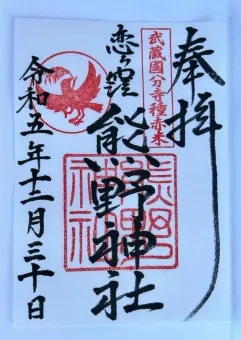 奉拝
武蔵國分寺種赤米
恋ヶ窪
熊野神社
令和五年十二月三十日